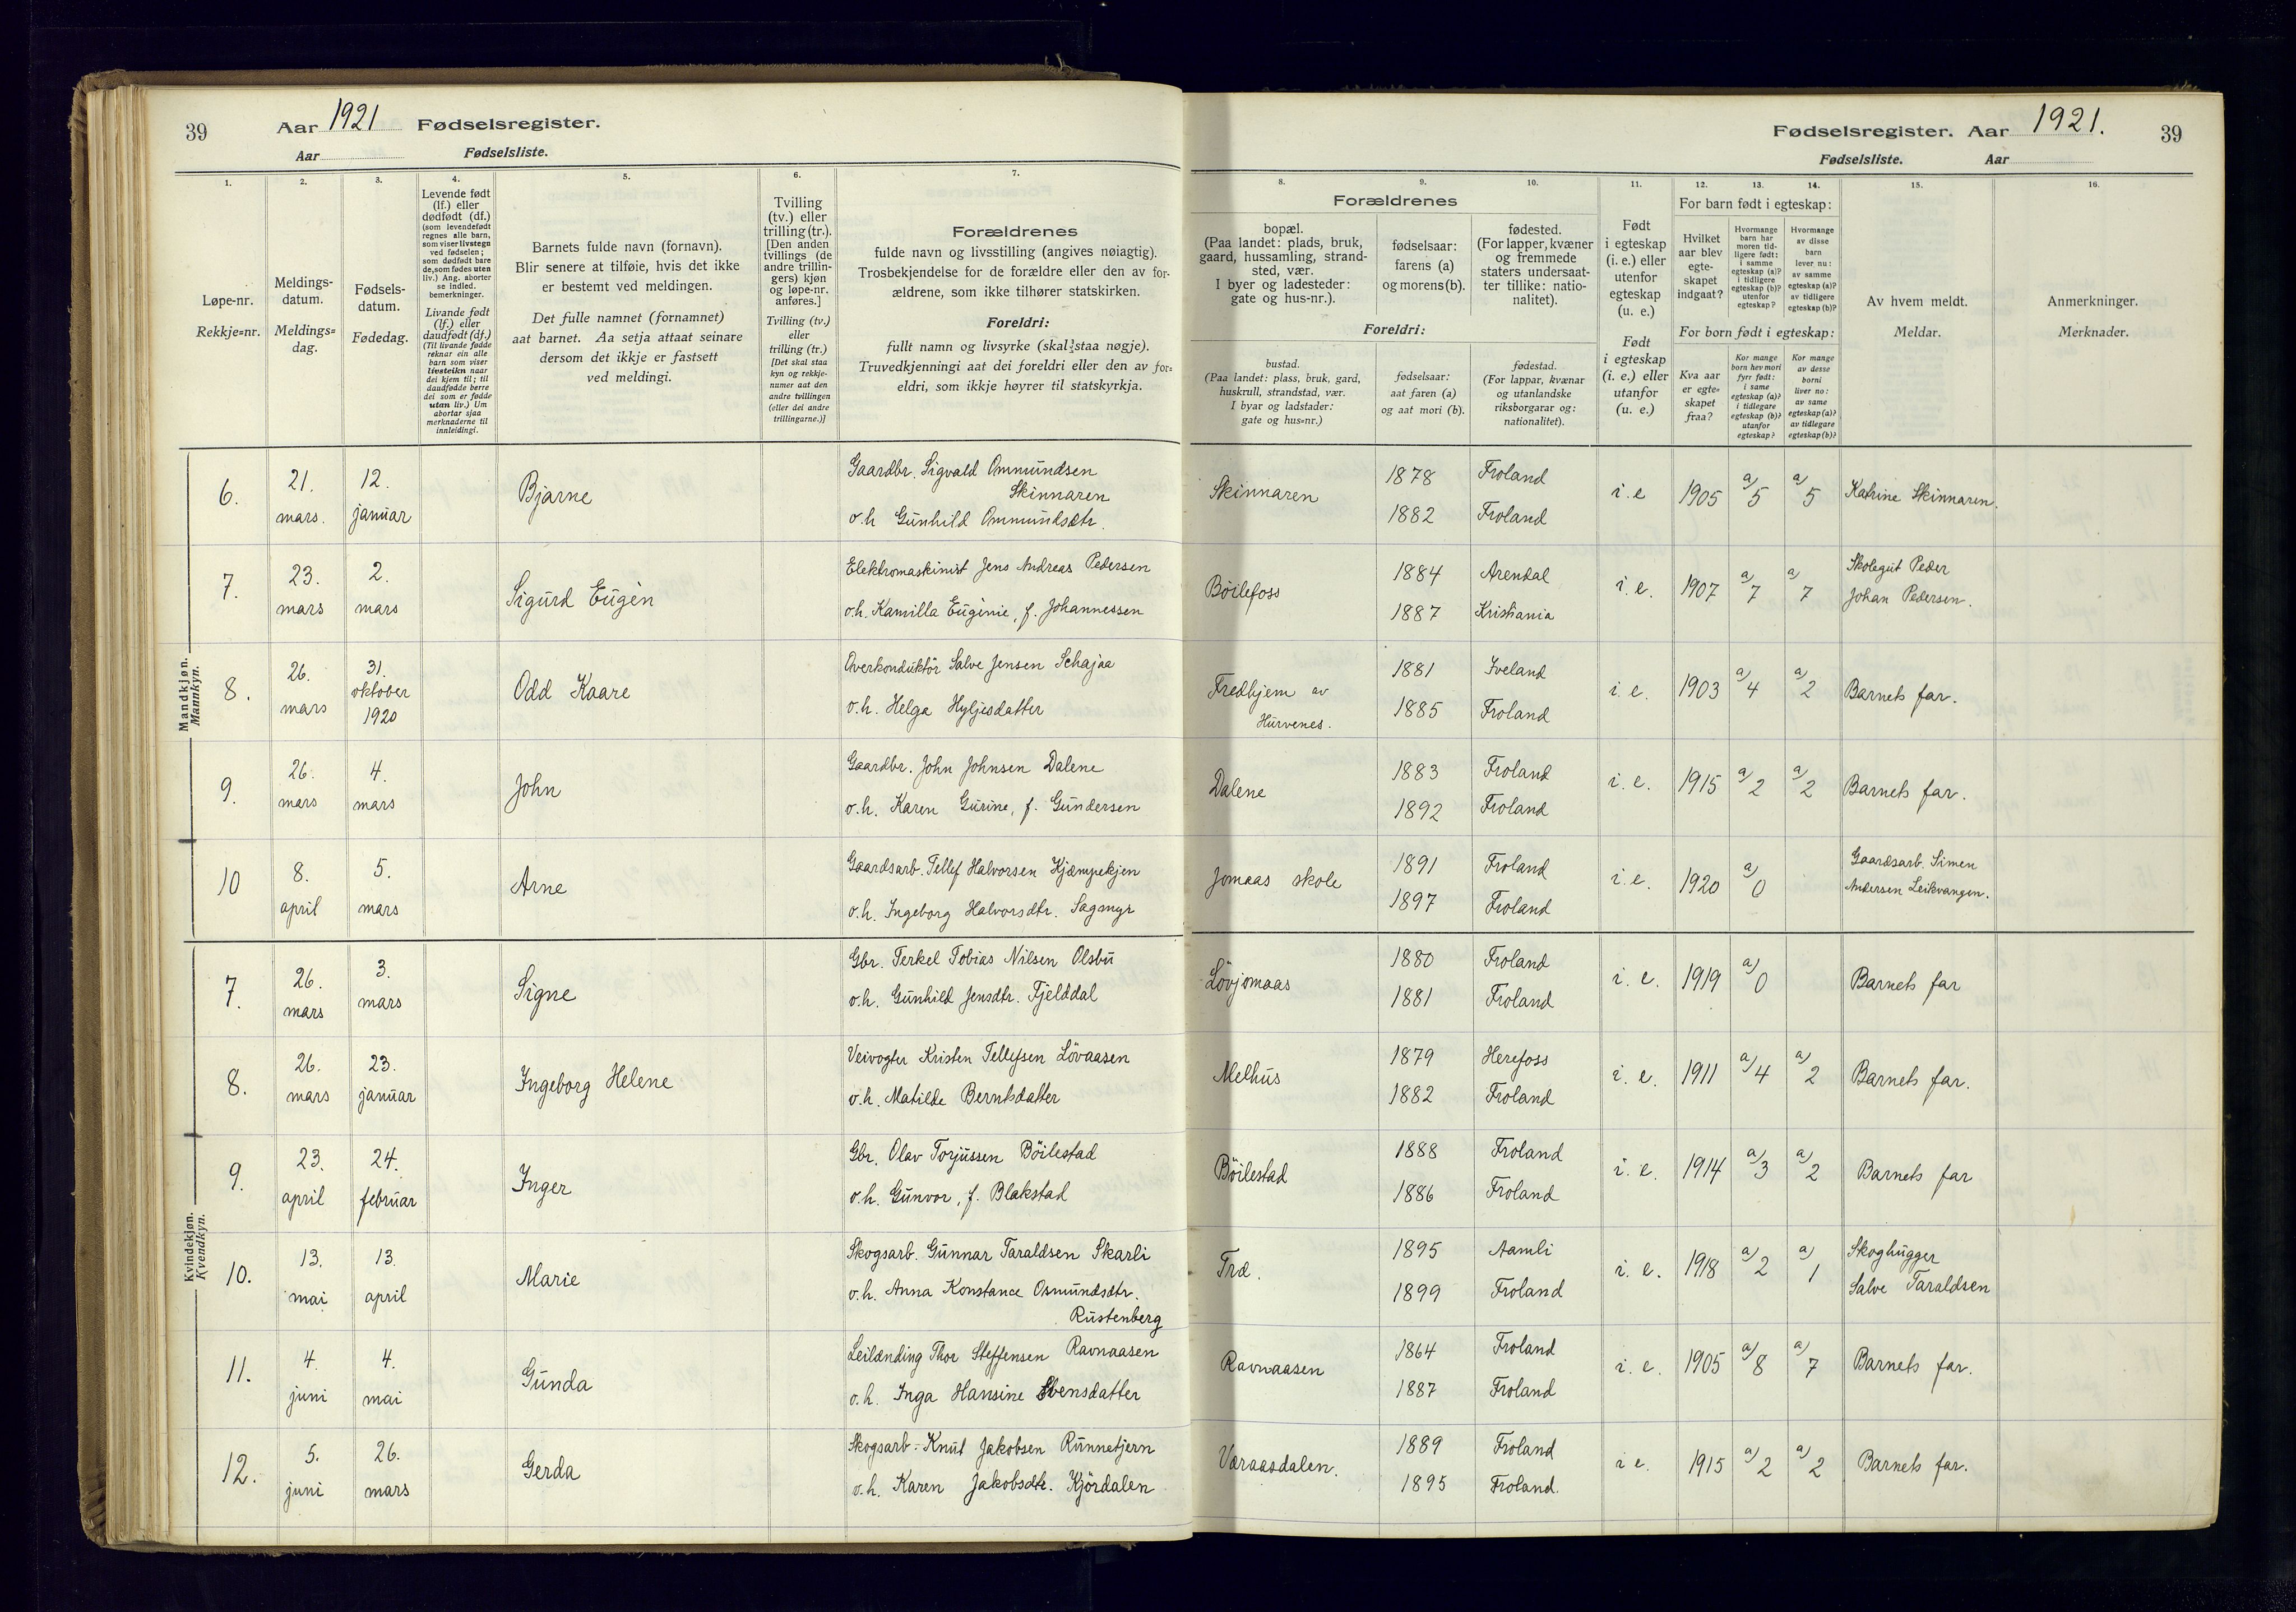 39 Aar 1921 Fødselsregister.
Aar Fødselsliste.
Fødselsregister. Aar 1921. 39
Fødselsliste. Aar
1. 2. 3. 4. 5. 6. 7. 8. 9. 10. 11. 12. 13. 14. 15. 16.
Løpe-nr.
Rekkje=nr.
Meldings-
datum.
Meldings=
dag.
Fødsels-
datum.
Fødedag.
Levende født
(lf.) eller
dødfødt (df.)
(som levendefødt
regnes alle barn,
som viser livstegn
ved fødselen;
som dødfødt bare
de, som fødes uten
liv.) Ang. aborter
se indled.
bemerkninger.
Livande født
(lf.) eller
daudfødt (df.)
(Til livande fødde
reknar ein alle
barn som viser
livsteikn naar
dei kjem til; til
daudfødde berre
dei som er fødde
utan liv.) Um
abortar sjaa
merknaderne til
innleidingi.
Barnets fulde navn (fornavn).
Blir senere at tilføie, hvis det ikke
er bestemt ved meldingen.
Det fulle namnet (fornamnet)
aat barnet. Aa setja attaat seinare
dersom det ikkje er fastsett
ved meldingi.
Tvilling
(tv.) eller
trilling (tr.).
[Den anden
tvillings (de
andre trillin-
gers) kjøn
og løpe-nr.
anføres.]
Tvilling (tv.)
eller
trilling (tr.)
[Det skal staa
kyn og rekkje-
numer aat den
andre tvillingen
(eller dei andre
trillingarne.)]
Forældrenes
fulde navn og livsstilling (angives nøiagtig).
Trosbekjendelse for de forældre eller den av for-
ældrene, som ikke tilhører statskirken.
Foreldri:
fullt namn og livsyrke (skal staa nøgje).
Truvedkjenningi aat dei foreldri eller den av for=
eldri, som ikkje høyrer til statskyrkja.
Forældrenes
bopæl.
(Paa landet: plads, bruk,
gaard, hussamling, strand-
sted, vær.
I byer og ladesteder:
gate og hus-nr.).
fødselsaar:
farens (a)
og morens (b).
fødested.
(For lapper, kvæner
og fremmede
staters undersaat-
ter tillike: natio-
nalitet).
Foreldri:
bustad.
(Paa landet: plass, bruk, gard,
huskrull, strandstad, vær.
I byar og ladstader:
gate og hus=nr.)
fødselsaar:
aat faren (a)
og aat mori (b).
fødestad.
(For lappar, kvænar
og utanlandske
riksborgarar og:
nationalitet).
Født
i egteskap
(i. e.) eller
utenfor
egteskap
(u. e.)
Født
i egteskap
(i. e.) eller
utanfor
(u. e.)
For barn født i egteskap:
Hvilket
aar blev
egte-
skapet
indgaat?
Hvormange
barn har
moren tid-
ligere født:
i samme
egteskap (a)?
i tidligere
egteskap (b)?
utenfor
egteskap?
Hvormange
av disse
barn
lever nu:
av samme
egteskap (a)?
av tidligere
egteskap (b)?
For born født i egteskap:
Kva aar
er egte=
skapet
fraa?
Kor mange
born hev mori
fyrr født:
i same
egteskap (a)?
i tidlegare
egteskap (b)?
utanfor
egteskap?
Kor mange
av desse
borni
liver no:
av same
egteskap (a)?
av tidlegare
egteskap (b)?
Av hvem meldt.
Meldar.
Anmerkninger.
Merknader.
Mandkjøn.
Mannkyn.
6. 21. mars. 12. januar Bjarne
Gaardbr. Sigvald Ommundsen
Skinnaren
o.h Gunhild Ommundsdtr.
Skinnaren 1878 Froland 1882 Froland i.e 1905 a) 5 a) 5 Katrine Skinnaren.
7. 23. mars 2. mars Sigurd Eugèn
Elektromaskinist Jens Andreas Pedersen
o.h. Kamilla Eugènie, f. Johannessen
Böilefoss 1884 Arendal 1887 Kristiania i.e. 1907 a) 7 a) 7 Skolegut Peder
Johan Pedersen.
8. 26. mars 31. oktober 1920 Odd Kaare
Overkonduktör Salve Jensen Schajaa
o.h. Helga Hyljesdatter
Fredhjem av
Hurvenes. 1881 Iveland 1885 Froland i.e. 1903 a) 4 a) 2 Barnets far.
9. 26. mars 4. mars John
Gaardbr. John Johnsen Dalene
o.h. Karen Gurine, f. Gundersen
Dalene 1883 Froland 1892 Froland i.e. 1915 a) 2 a) 2 Barnets far.
10 8. april 5. mars Arne
Gaardsarb. Tellef Halvorsen Kjæmpekjen
o.h. Ingeborg Halvorsdtr. Sagmyr
Jomaas skole 1891 Froland 1897 Froland i.e. 1920 a) 0 Gaardsarb. Simen
Andersen Leikvangen.
Kvindekjøn.
Kvendkyn.
7. 26. mars 3. mars Signe
Gbr. Terkel Tobias Nilsen Olsbu
o.h. Gunhild Jensdtr. Fjelddal
Lövjomaas 1880 Froland 1881 Froland i. e. 1919 a) 0 Barnets far
8. 26. mars 23. januar Ingeborg Helene
Veivogter Kristen Tellefsen Lövaasen
o.h. Matilde Berntsdatter
Melhus 1879 Herefoss 1882 Froland i. e. 1911 a) 4 a) 2 Barnets far.
9. 23. april 24. februar Inger
Gbr. Olav Torjussen Böilestad
o.h. Gunvor, f. Blakstad
Böilestad 1888 Froland 1886 Froland i. e. 1914 a) 3 a) 2 Barnets far
10. 13. mai 13. april Marie
Skogsarb. Gunnar Taraldsen Skarli
o.h. Anna Konstance Osmundsdtr.
Rustenberg
Træ. 1895 Aamli 1899 Froland i. e. 1918 a) 2 a) 1 Skoghugger
Salve Taraldsen
11. 4. juni 4. mai Gunda
Leilænding Thor Steffensen Ravnaasen
o.h. Inga Hansine
Ravnaasen 1864 Froland 1887 Froland i. e. 1905 a) 8 a) 7 Barnets far.
12. 5. juni 26. mars Gerda
Skogsarb. Knut Jakobsen Runnetjern
o.h. Karen Jakobsdtr. Kjördalen
Væraasdalen. 1889 Froland 1895 Froland. i e. 1915 a) 2 a) 2 Barnets far.